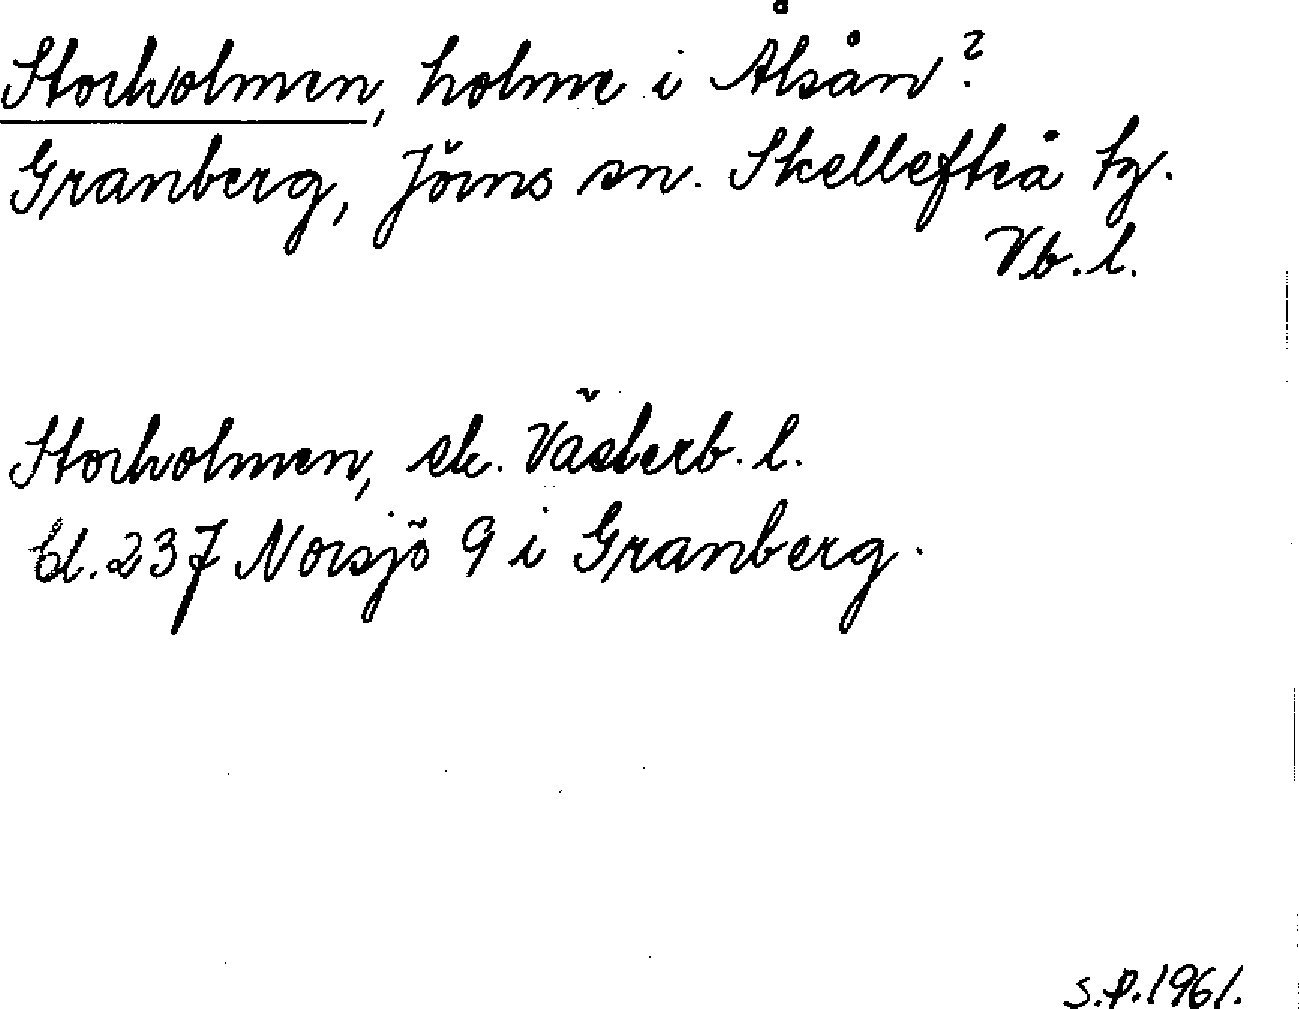 Storholmen, holme i Ålsån?
Granberg, Jörns sn. Skellefteå tg.
Vb. l.
Storholmen, ek. Västerb. l.
bl. 237 Norsjö 9 i Granberg.
S.P. 1961.